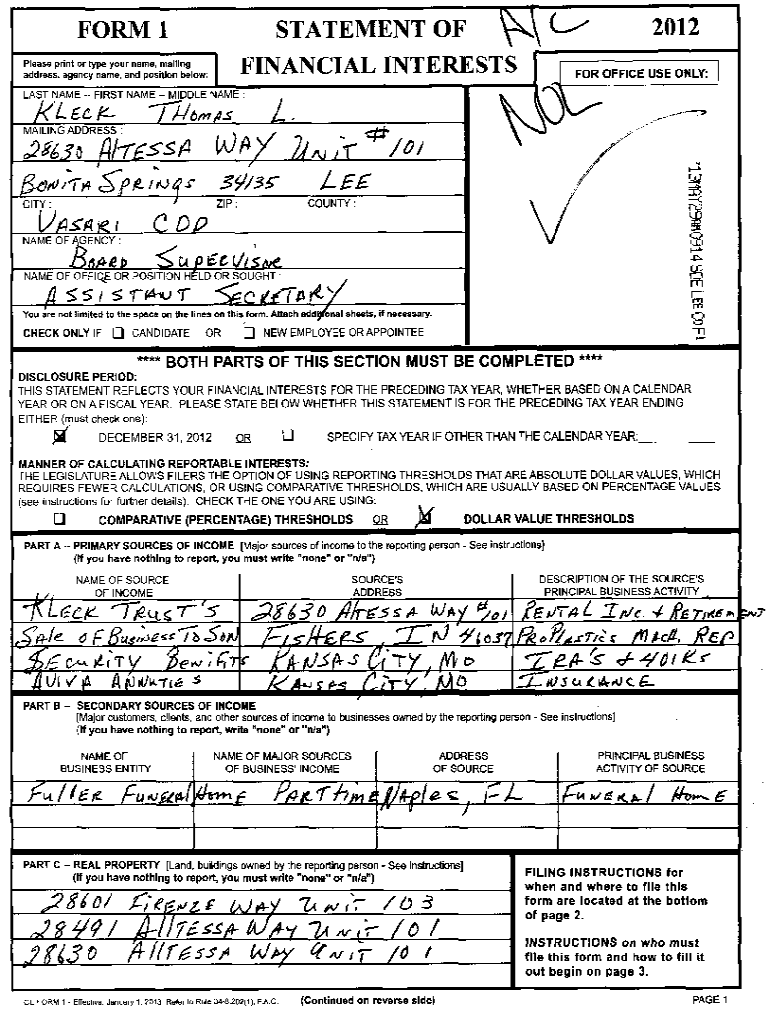 FORM 1 STATEMENT OF A/C 2012
Please print or type your name, mailing
address, agency name, and position below:
FINANCIAL INTERESTS
FOR OFFICE USE ONLY:
NOL
LAST NAME -- FIRST NAME -- MIDDLE NAME :
KLECK THOMAS L.
MAILING ADDRESS :
28630 AlTESSA WAY UNiT #101
BONITA SPRINGS 34135 LEE
CITY : ZIP : COUNTY :
VASARI CDD
NAME OF AGENCY :
BOARD SUPERVISOR
NAME OF OFFICE OR POSITION HELD OR SOUGHT :
ASSISTANT SECRETARY
You are not limited to the space on the lines on this form. Attach additional sheets, if necessary.
CHECK ONLY IF ☐ CANDIDATE OR ☐ NEW EMPLOYEE OR APPOINTEE
**** BOTH PARTS OF THIS SECTION MUST BE COMPLETED ****
DISCLOSURE PERIOD:
THIS STATEMENT REFLECTS YOUR FINANCIAL INTERESTS FOR THE PRECEDING TAX YEAR, WHETHER BASED ON A CALENDAR
YEAR OR ON A FISCAL YEAR. PLEASE STATE BELOW WHETHER THIS STATEMENT IS FOR THE PRECEDING TAX YEAR ENDING
EITHER (must check one):
☒ DECEMBER 31, 2012 OR ☐ SPECIFY TAX YEAR IF OTHER THAN THE CALENDAR YEAR:
MANNER OF CALCULATING REPORTABLE INTERESTS:
THE LEGISLATURE ALLOWS FILERS THE OPTION OF USING REPORTING THRESHOLDS THAT ARE ABSOLUTE DOLLAR VALUES, WHICH
REQUIRES FEWER CALCULATIONS, OR USING COMPARATIVE THRESHOLDS, WHICH ARE USUALLY BASED ON PERCENTAGE VALUES
(see instructions for further details). CHECK THE ONE YOU ARE USING:
☐ COMPARATIVE (PERCENTAGE) THRESHOLDS OR ☒ DOLLAR VALUE THRESHOLDS
PART A -- PRIMARY SOURCES OF INCOME [Major sources of income to the reporting person - See instructions]
(If you have nothing to report, you must write "none" or "n/a")
NAME OF SOURCE SOURCE'S DESCRIPTION OF THE SOURCE'S
OF INCOME ADDRESS PRINCIPAL BUSINESS ACTIVITY
KLECK TRUST'S 28630 AlTESSA WAY #101 RENTAL INC. + RETIREMENT
Sale OF Business To Son FISHERS, IN 46037 PRoPlastics MACH. REP
SECURITY BENifiTS KANSAS CITY, MO IRA'S + 401KS
AVIVA ANNUTIES KANSAS CITY, MO INSURANCE
PART B -- SECONDARY SOURCES OF INCOME
[Major customers, clients, and other sources of income to businesses owned by the reporting person - See instructions]
(If you have nothing to report, write "none" or "n/a")
NAME OF NAME OF MAJOR SOURCES ADDRESS PRINCIPAL BUSINESS
BUSINESS ENTITY OF BUSINESS' INCOME OF SOURCE ACTIVITY OF SOURCE
Fuller Funeral Home PART time Naples, FL FUNERAl HomE
PART C -- REAL PROPERTY [Land, buildings owned by the reporting person - See Instructions]
(If you have nothing to report, you must write "none" or "n/a")
28601 FIRENZE WAY UNIT 103
28491 AllTESSA WAY UNIT 101
28630 AllTESSA WAY UNIT 101
FILING INSTRUCTIONS for
when and where to file this
form are located at the bottom
of page 2.
INSTRUCTIONS on who must
file this form and how to fill it
out begin on page 3.
CE FORM 1 - Effective: January 1, 2013. Refer to Rule 34-8.202(1), F.A.C. (Continued on reverse side) PAGE 1